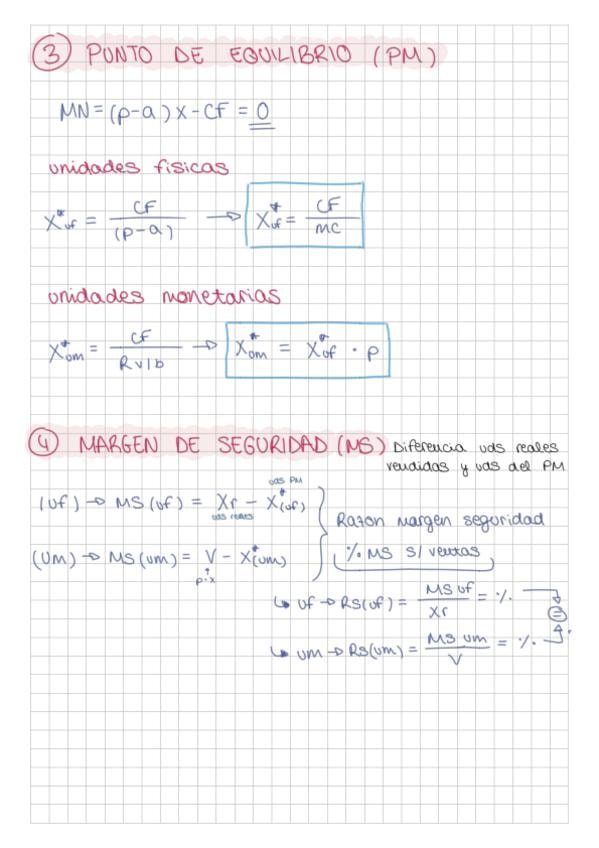 3 PUNTO DE EQUILIBRIO (PM)
MN = (p-a) x - CF = 0
unidades físicas
X*uf = CF / (p-a) → X*uf = CF / MC
unidades monetarias
X*um = CF / Rv/b → X*um = X*uf · p
4 MARGEN DE SEGURIDAD (MS) Diferencia uds reales
vendidas y uds del PM
uds PM
(uf) → MS (uf) = Xr - X*(uf)
uds reales
Razon margen seguridad
(um) → MS (um) = V - X*(um)
% MS s/ ventas
p·x
↳ uf → RS(uf) = MS uf / Xr = %
=
↳ um → RS(um) = MS um / V = %.